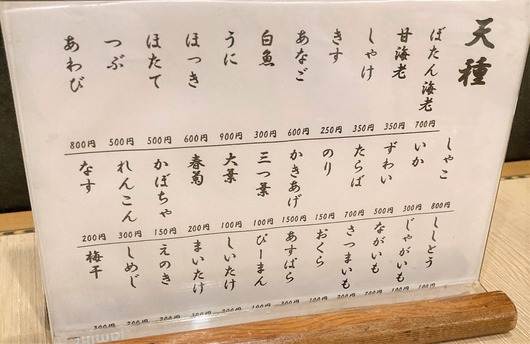 天種
ぼたん海老 700円
甘海老 350円
しゃけ 350円
きす 250円
あなご 600円
白魚 300円
うに 900円
ほっき 600円
ほたて 500円
つぶ 500円
あわび 800円
しゃこ
いか 300円
ずわい 500円
たらば 700円
のり 150円
かきあげ 1500円
三つ葉 100円
大葉 100円
春菊 200円
かぼちゃ 150円
れんこん 300円
なす 200円
ししとう
じゃがいも
ながいも
さつまいも
おくら
あすぱら
ぴーまん
しいたけ
まいたけ
えのき
しめじ
梅干